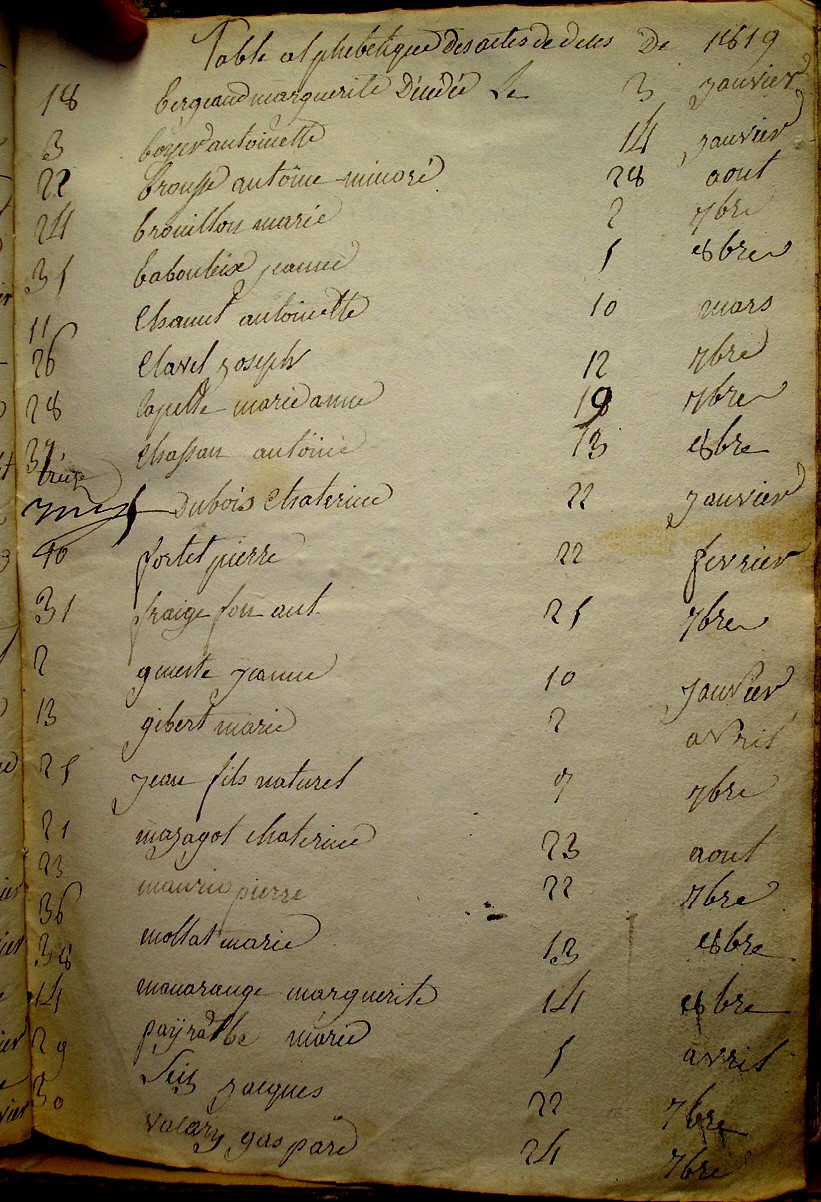 Table alphebetique des actes de deces De 1819
18 bergeaud marguerite Décédée Le 3 janvier
3 boyer antoinette 14 janvier
22 brousse antoine minoré 28 aout
24 brouillon marie 2 7bre
35 babouleix jeanne 5 8bre
11 Chamut antoinette 10 mars
26 Clavel joseph 12 7bre
28 Capelle marie anne 19 7bre
37 Chassan antoine 13 8bre
treize Dubois Chaterine 22 janvier
10 fortet pierre 22 fevrier
31 fraige fon ant 25 7bre
2 gueste jeanne 10 janvier
13 gibert marie 2 avril
25 jean fils naturel 7 7bre
21 mazagot Chaterine 23 aout
23 maurin pierre 22 7bre
36 mollat marie 13 8bre
38 manarange marguerite 14 8bre
14 marie 5 avril
29 jacques 22 7bre
30 valary gaspare 24 7bre